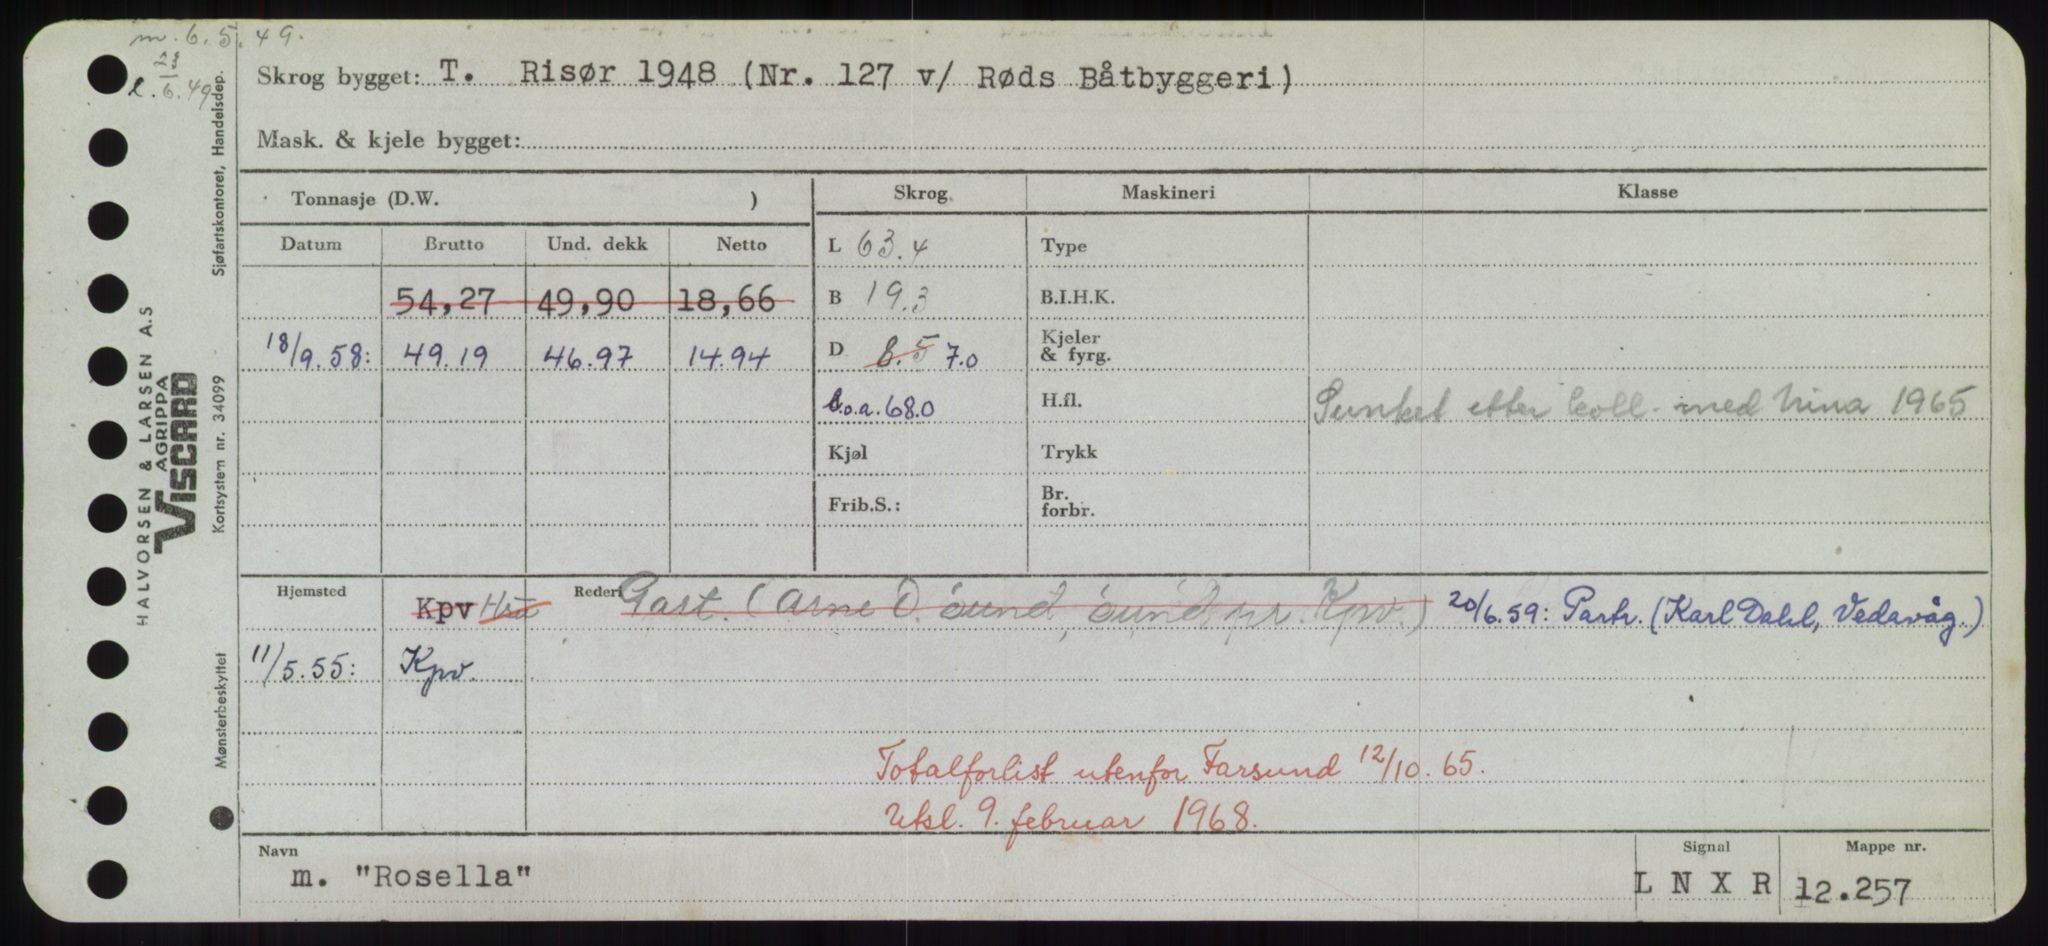 m. 6.5.49.
l. 23/6.49
Skrog bygget: T. Risør 1948 (Nr. 127 v/ Røds Båtbyggeri)
Mask. & kjele bygget:
Tonnasje (D.W. )
Skrog
Maskineri
Klasse
Datum Brutto Und. dekk Netto
L 63.4
Type
54,27 49,90 18,66
B 19.3
B.I.H.K.
18/9.58: 49.19 46.97 14.94
D 8.5 7.0
Kjeler
& fyrg.
l.o.a. 68.0
H.fl.
Sunket etter koll. med Nina 1965
Kjøl
Trykk
Frib.S.:
Br.
forbr.
Hjemsted Kpv
Rederi Part. (Arne O. Sund, Sund pr. Kpv.) 20/6.59: Partr. (Karl Dahl, Vedavåg.)
11/5.55: Kpv.
Totalforlist utenfor Farsund 12/10.65.
Utsl. 9. februar 1968.
Navn
m. "Rosella"
Signal
L N X R
Mappe nr.
12.257
HALVORSEN & LARSEN A.S
AGRIPPA
VISCARD
Sjøfartskontoret, Handelsdep.
Kortsystem nr. 34099
Mønsterbeskyttet